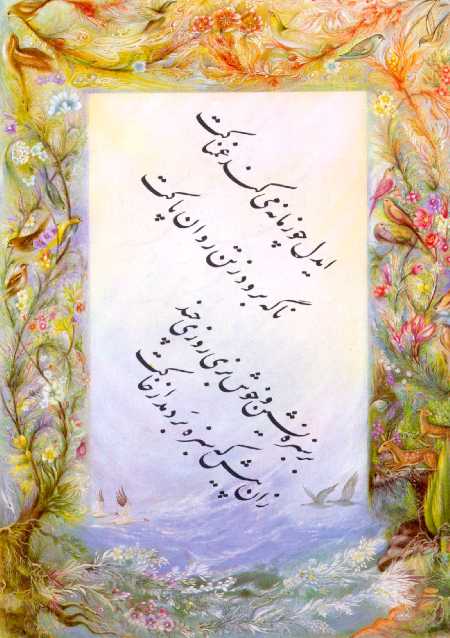 ایدل چو زمانه می کند غمناکت
ناگه برود ز تن روان پاکت
بر سبزه نشین و خوش بزی روزی چند
زان پیش که سبزه بر دمد از خاکت